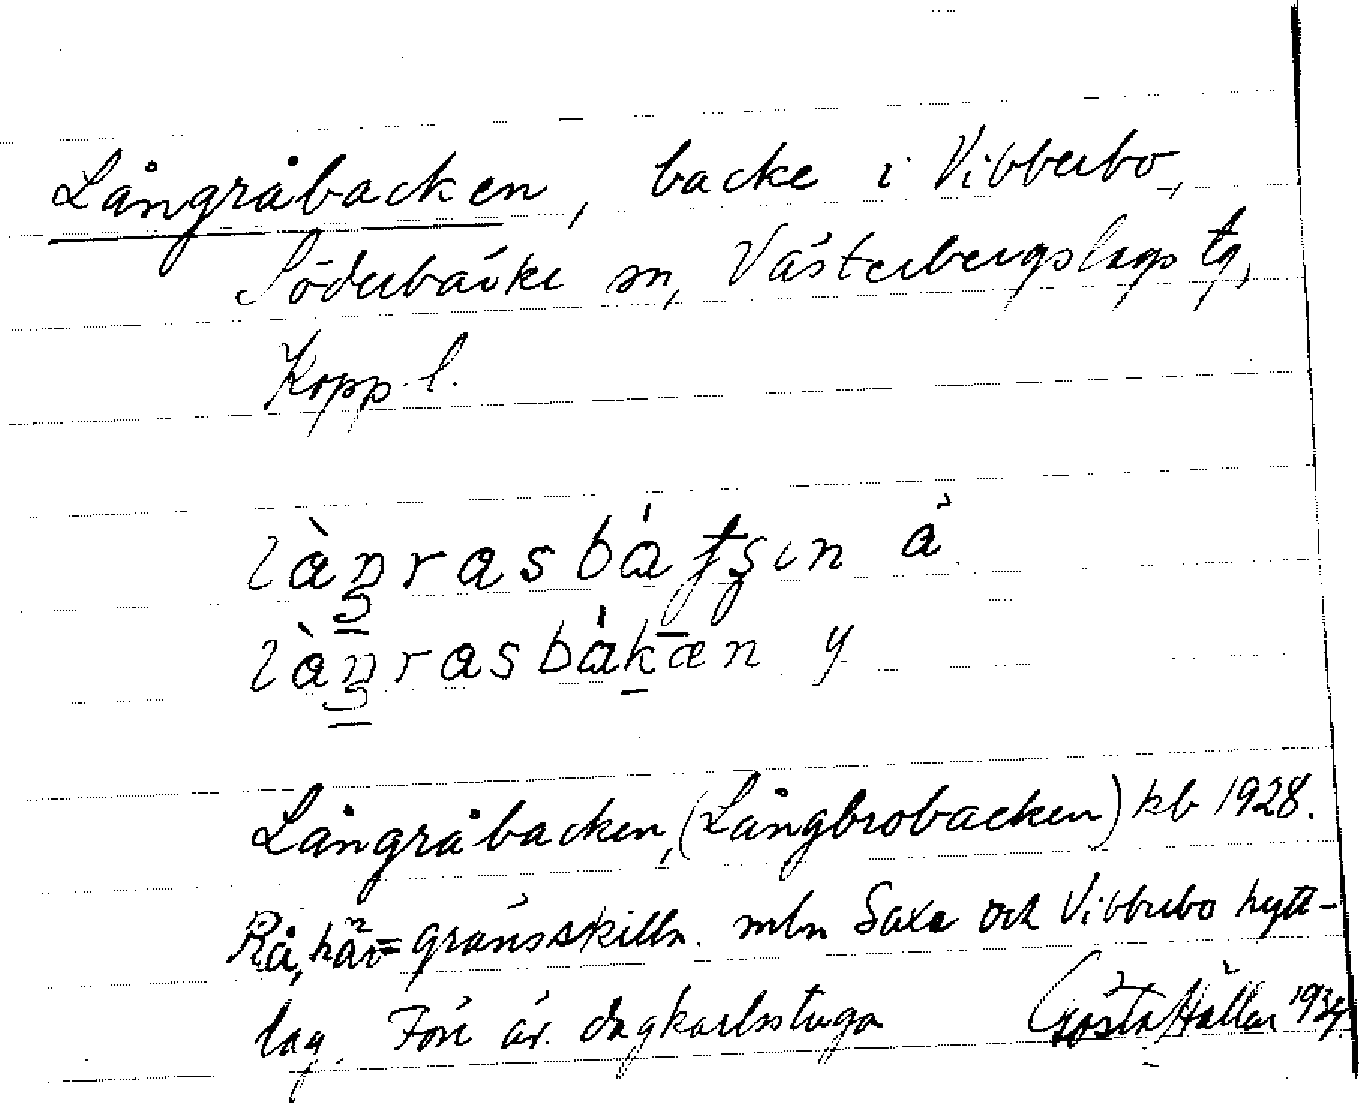 Långråbacken, backe i Vibberbo,
Söderbärke sn, Västerbergslags tg,
Kopp. l.
làŋrasbátşın ä
làŋrasbákæn y
Långråbacken, (Långbrobacken) kb 1928.
Rå, här = gränsskilln. mln Saxe och Vibberbo hytt-
lag. Förr är. dagkarlsstuga Gösta Hallar 1934.